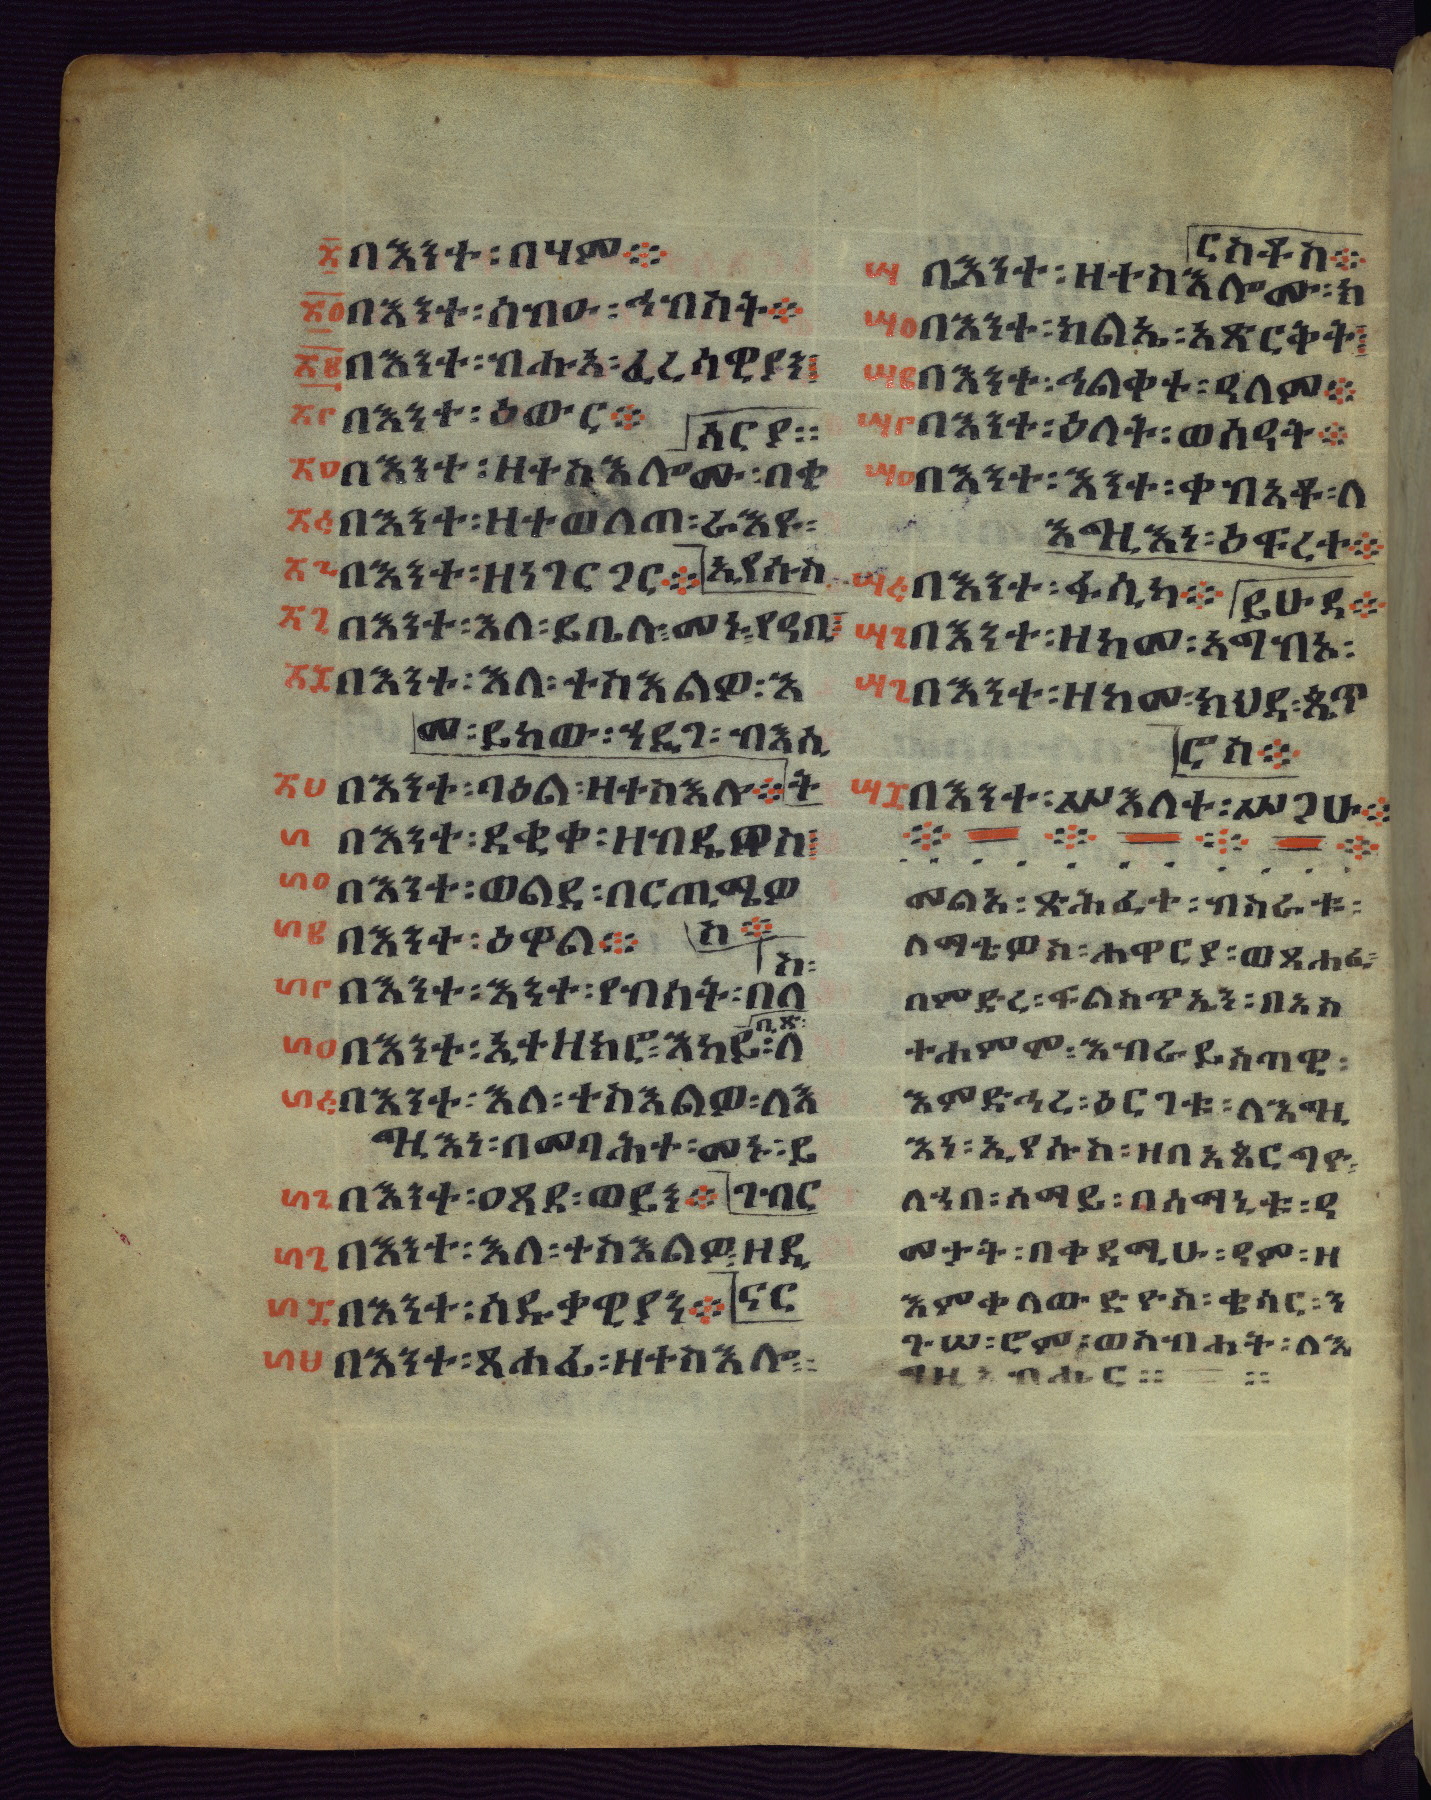 ፴ በእንተ፡በሃም፨
፴፩ በእንተ፡ሰብዑ፡ኅብስት፨
፴፪ በእንተ፡ብሑእ፡ፈሪሳዊያን፨
፴፫ በእንተ፡ዕውር፨
አርያ።
፴፬ በእንተ፡ዘተስእሎሙ፡በቂ
፴፭ በእንተ፡ዘተወለጠ፡ራእዩ፡
፴፮ በእንተ፡ዘነገርጋር፨ ኢየሱስ
፴፯ በእንተ፡እለ፡ይቤሉ፡መኑ፡የዓቢ፨
፴፰ በእንተ፡እለ፡ተስእልዎ፡እ
መ፡ይከውን፡ኀዲገ፡ብእሲ
፴፱ በእንተ፡ባዕል፡ዘተስእሎ፨ ት
፵ በእንተ፡ደቂቀ፡ዘብዴዎስ፨
፵፩ በእንተ፡ወልደ፡በርጤሜዎ
፵፪ በእንተ፡ዕዋል፨ ስ፨
ስ፡
፵፫ በእንተ፡እንተ፡የብሰት፡በለ
ቢጽ፡
፵፬ በእንተ፡ኢተዘክሮ፡እከይ፡ለ
፵፭ በእንተ፡እለ፡ተስእልዎ፡ለእ
ግዚእነ፡በመባሕተ፡መኑ፡ይ
፵፮ በእንተ፡ዐጸደ፡ወይን፨ ገብር
፵፯ በእንተ፡እለ፡ተስእልዎ፡ዘዲ
ናር
፵፰ በእንተ፡ሰዱቃዊያን፨
፵፱ በእንተ፡ጸሐፌ፡ዘተስእሎ፡
ርስቶስ፨
፶ በእንተ፡ዘተስእሎሙ፡ክ
፶፩ በእንተ፡ክልኤ፡አጽርቅት፨
፶፪ በእንተ፡ኅልቀተ፡ዓለም፨
፶፫ በእንተ፡ዕለት፡ወሰዓት፨
፶፬ በእንተ፡እንተ፡ቀብአቶ፡ለ
እግዚእነ፡ዕፍረተ፨
፶፭ በእንተ፡ፋሲካ፨ ይሁዳ፨
፶፮ በእንተ፡ዘከመ፡አግብኦ፡
፶፯ በእንተ፡ዘከመ፡ክህደ፡ጴጥ
ሮስ፨
፶፰ በእንተ፡ሥእለተ፡ሥጋሁ፨
መልአ፡ጽሕፈተ፡ብስራቱ፡
ለማቴዎስ፡ሐዋርያ፡ወጸሐፈ፡
በምድረ፡ፍልስጥኤን፡በአስ
ተሐምሞ፡እብራይስጣዊ፡
እምድኅረ፡ዕርገቱ፡ለእግዚ
እነ፡ኢየሱስ፡ዘበአጼርግዮ፡
ለኀበ፡ሰማይ፡በሰማኒቱ፡ዓ
መታት፡በቀዳሚሁ፡ዓም፡ዘ
እምቀለውድዮስ፡ቄሳር፡ን
ጉሠ፡ሮም፡ወስብሐት፡ለእ
ግዚአብሔር። ።